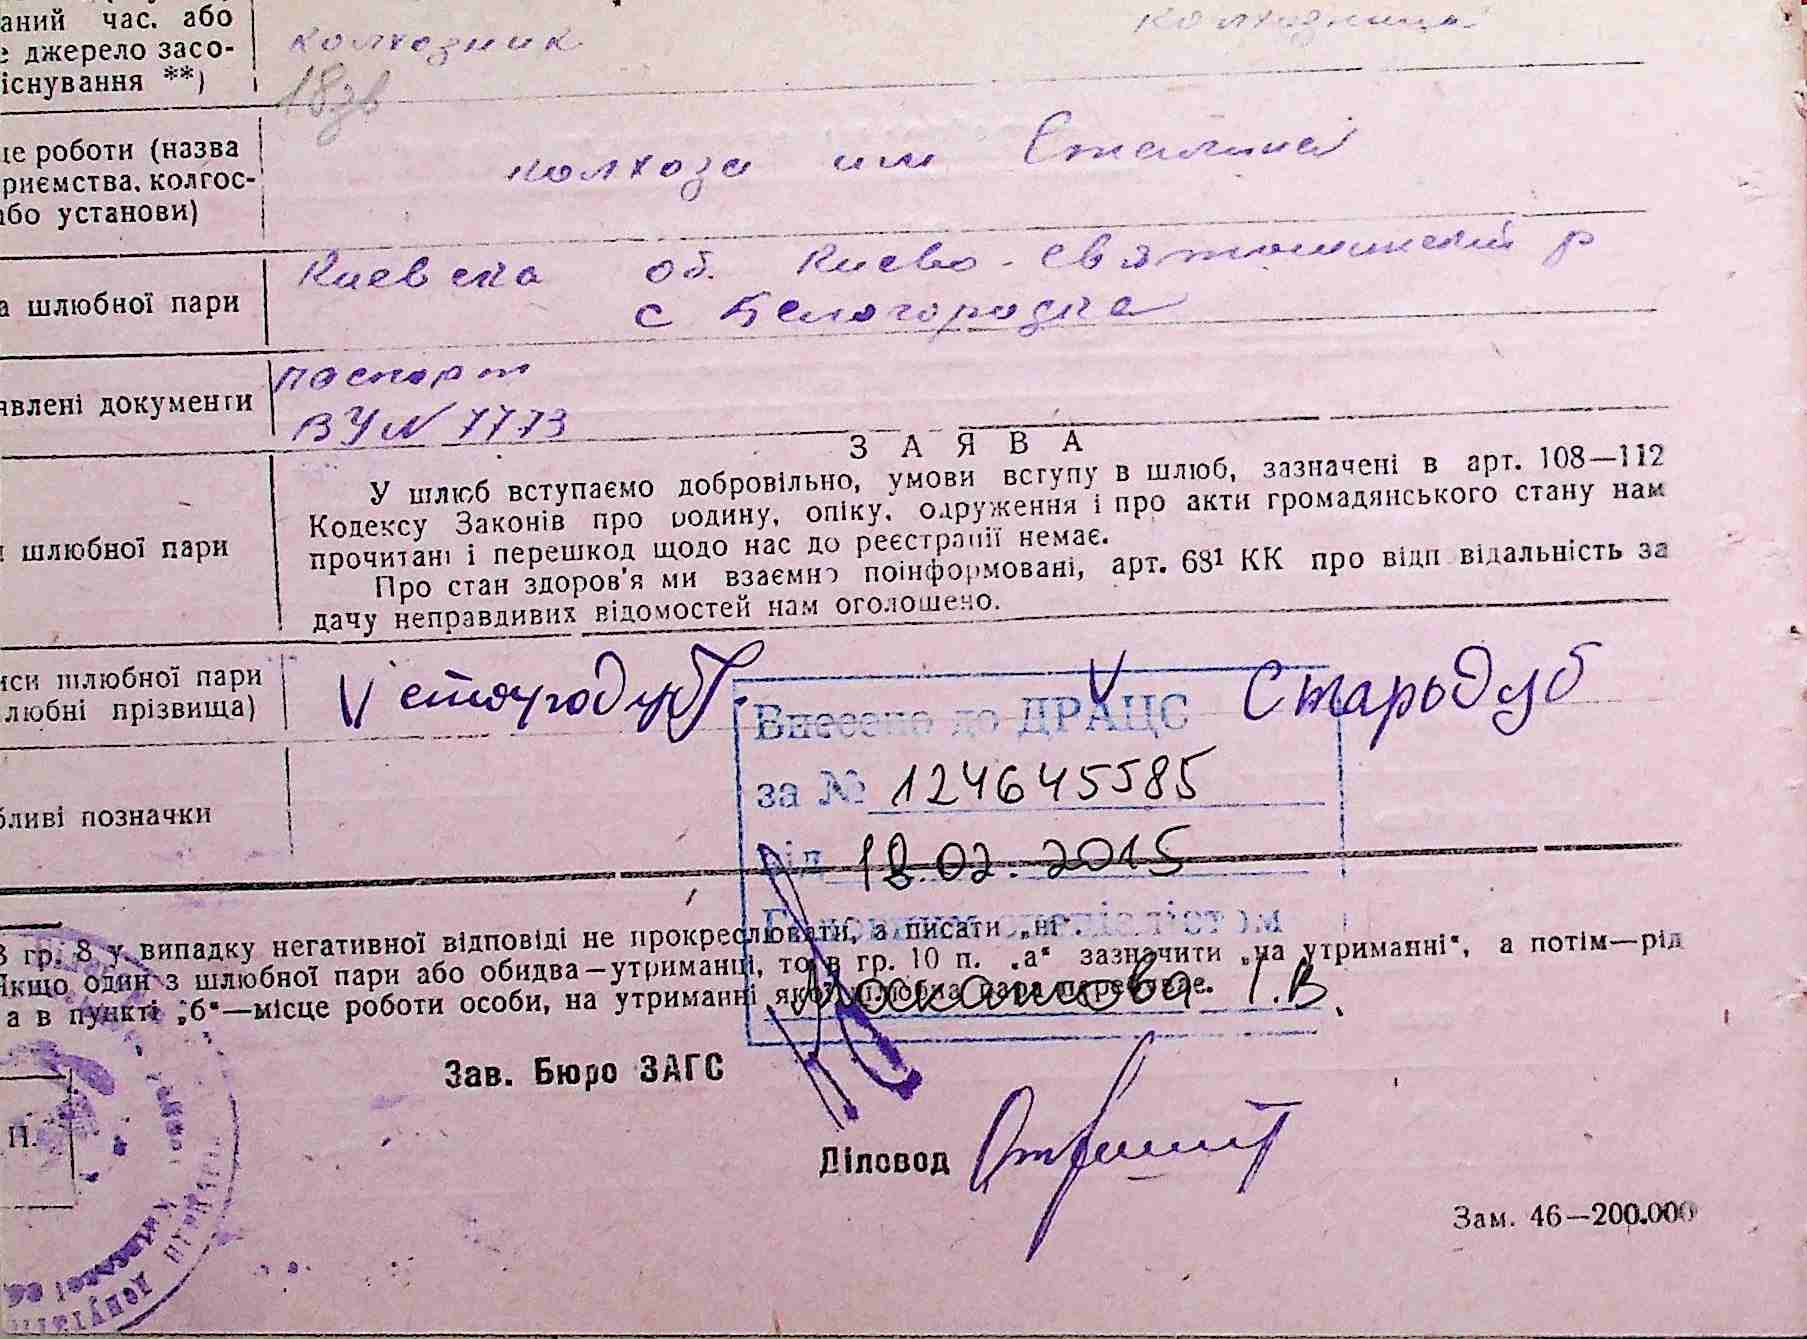 аний час. або
джерело засо-
існування **)
колхозник
колхозниця
18зв
це роботи (назва
приємства, колгос-
або установи)
колхоза им Сталина
а шлюбної пари
Киевска об. Киево-Святошинский р
с Белогородка
явлені документи
паспорт
ВУ N 7773
ЗАЯВА
У шлюб вступаємо добровільно, умови вступу в шлюб, зазначені в арт. 108—112
Кодексу Законів про родину, опіку, одруження і про акти громадянського стану нам
прочитані і перешкод щодо нас до реєстрації немає.
Про стан здоров'я ми взаємно поінформовані, арт. 68¹ КК про відповідальність за
дачу неправдивих відомостей нам оголошено.
шлюбної пари
иси шлюбної пари
люблні прізвища)
V Стародуб
V Стародуб
Внесено до ДРАЦС
за № 124645585
від 18.02.2015
Головним спеціалістом
І.В.
бливі позначки
В гр. 8 у випадку негативної відповіді не прокреслювати, а писати „ні".
Якщо один з шлюбної пари або обидва—утриманці, то в гр. 10 п. „а" зазначити „на утриманні", а потім—рід
а в пункті „б"—місце роботи особи, на утриманні якої шлюбна пара перебуває.
Зав. Бюро ЗАГС
П.
Діловод
Зам. 46—200.000